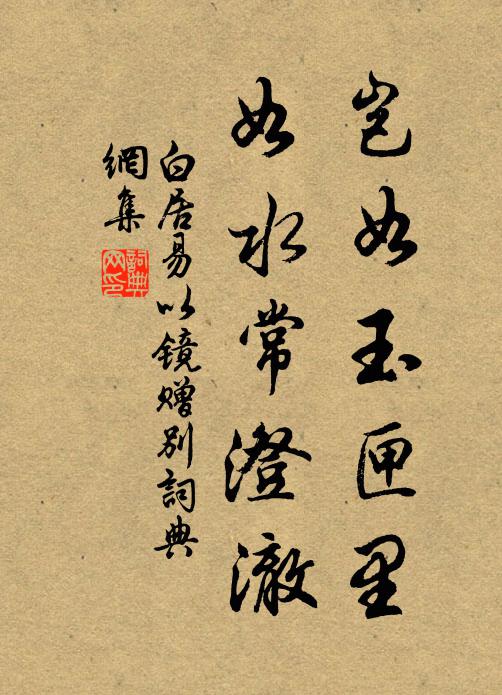 岂如玉匣里
如水常澄澈
白居易以镜赠别詞典
網集
詞典
网印